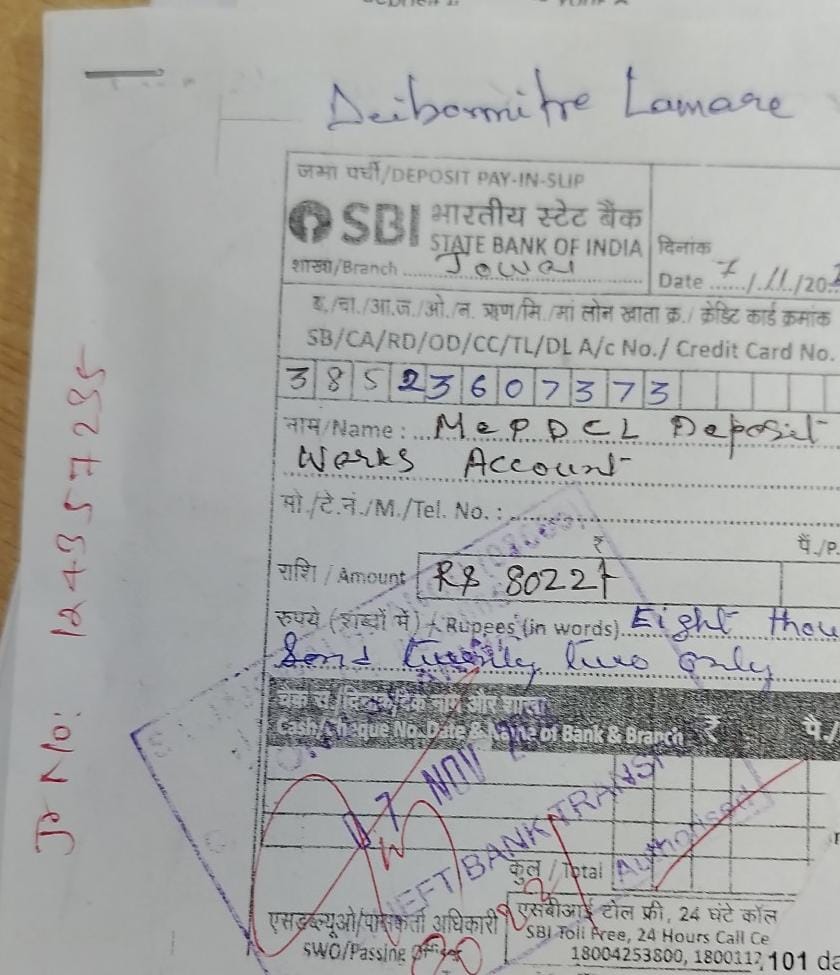 Deibormitre Lamare
जमा पर्ची/DEPOSIT PAY-IN-SLIP
SBI भारतीय स्टेट बैंक
STATE BANK OF INDIA
शाखा/Branch Jowai
दिनांक
Date 7/11/20
ब./चा./आ.ज./ओ./न. ऋण/मि./मां लोन खाता क्र./ क्रेडिट कार्ड क्रमांक
SB/CA/RD/OD/CC/TL/DL A/c No./ Credit Card No.
38523607373
नाम/Name: MePDCL Deposit
Works Account
मो./टे.नं./M./Tel. No. :
₹ पै./P.
राशि / Amount RS 8022/-
रुपये (शब्दों में) / Rupees (in words) Eight thou
Sand twenty two only
Cash/Cheque No. Date & Name of Bank & Branch ₹ पै./
07 NOV
NEFT/BANK TRANS
Authorised
कुल / Total
एसडब्ल्यूओ/पासकर्ता अधिकारी
SWO/Passing Officer
एसबीआई टोल फ्री, 24 घंटे कॉल
SBI Toll Free, 24 Hours Call Ce
18004253800, 1800112
101 da
Jr No: 124357295